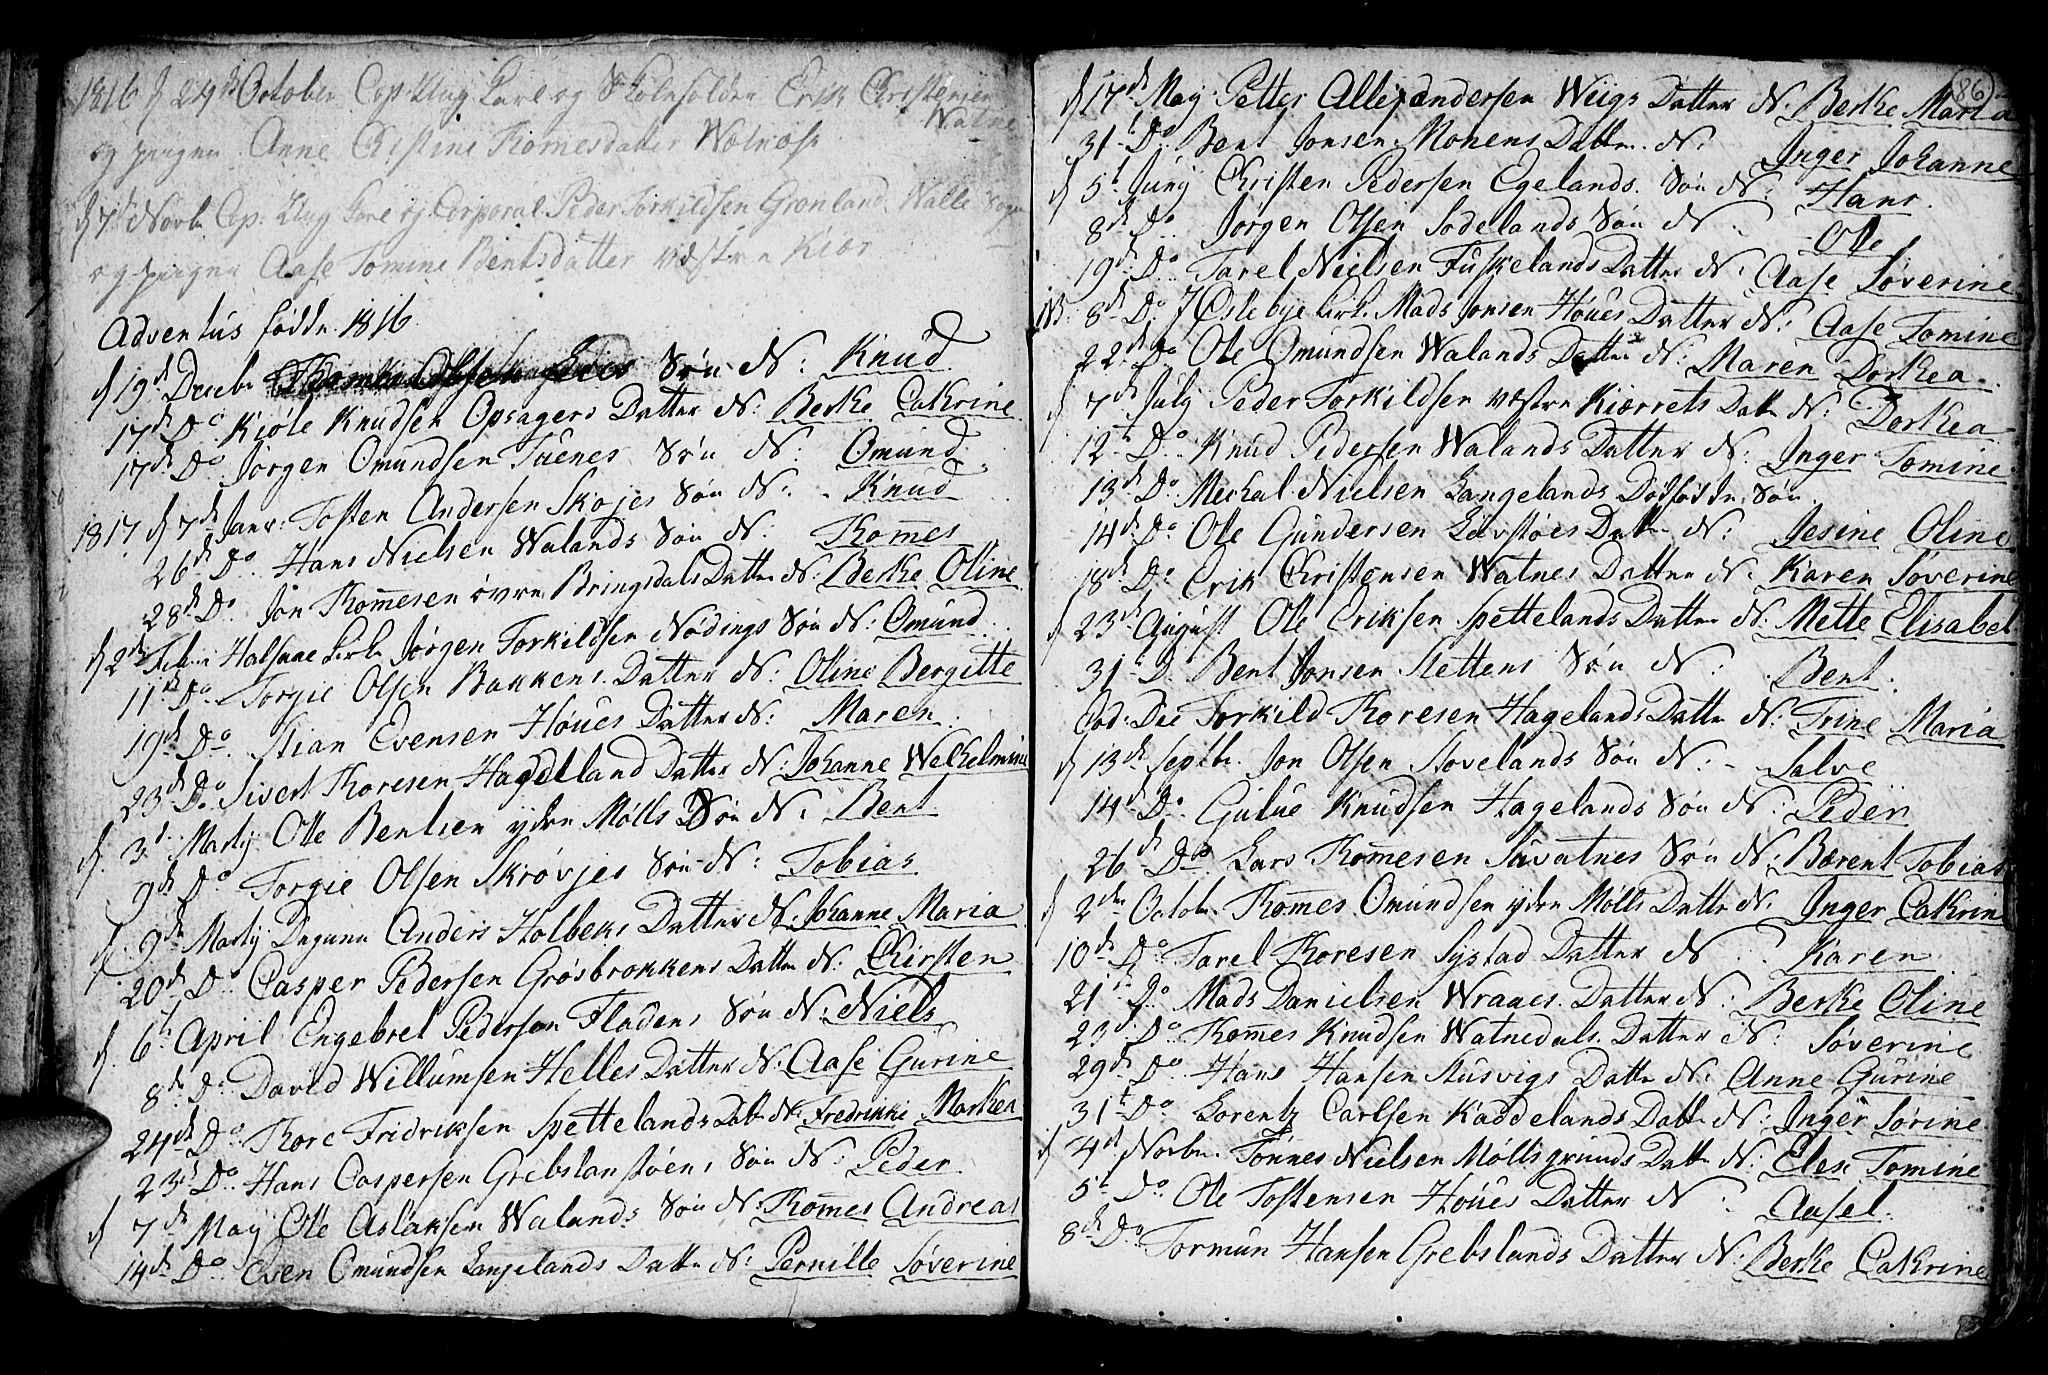 1816 d 24de October Cop: Ung Karl og Skoleholder Erik Christensen
Watne
og pigen Anne Cristine Thomesdatter Wolnøs
d 7de Novbr Cop: Ung Karl og Corporal Peder Torkildsen Grønland, Walle Sogn
og pigen Aase Tomine Bentsdatter vestre Kiær
Adventus födde 1816
d 19de Decbr Søn N: Knud
17de Do Kiøle Knudsen Opsagers Datter N: Berthe Cathrine
17de Do Jørgen Omundsen Tuenes Søn N: Omund
1817 d 7de Janr: Tosten Andersen Skøjes Søn N: Knud
26de Do Hans Nielsen Walands Søn N: Thom̄es
28de Do Jon Thom̄esen øvre Bringsdals Datter N: Berthe Oline
d 2den Febr: Halsaae Kirke Jørgen Torkildsen Nødings Søn N: Omund
11te Do Torgie Olsen Bakkens Datter N: Oline Bergitte
19de Do Stian Evensen Høues Datter N: Maren
23de Do Sivert Thoresen Hageland Datter N: Johanne Welhelmine
d. 3d. Martij Olle Bentsen ydre Mølls Søn N: Bent
9de Do Torgie Olsen Skrøvjes Søn N: Tobias
d. 9de Martij Degnen Anders Holbeks Datter N. Johanne Maria
20de Do Casper Pedersen Grøsbrokkens Datter N: Chirsten
d. 6t April Engebret Pedersøn Fladens Søn N: Niels
8de Do David Willumsen Helles Datter N: Aase Gurine
24de Do Thore Fridriksen Spettelands Datter N: Fredrikke Marthea
23d Do Hans Caspersen Grebslandstøens Søn N: Peder
d 7de May Ole Aslaksen Walands Søn N: Thom̄es Andreas
14de Do Even Omundsen Langelands Dattr N: Pernille Søverine
86
d 17de May Petter Allexandersen Wiigs Datter N. Berthe Maria
31t Do Bent Jonsen Monens Dattr N: Inger Johanne
d 5t Junij Christen Pedersen Egelands Søn N: Hans
8de Do Jørgen Olsen Sodelands Søn N: Ole
19de Do Tarel Nielsen Fuskelands Datter N: Aase Søverine
NB 8de Do I Østebye Kirke Mads Jonsen Høues Datter N: Aase Tomine
22de Do Ole Omundsen Walands Datter N: Maren Dorthea
d 7de July Peder Torkildsen vestre Kiærrets Dattr N: Dorthea
12te Do Knud Pedersen Walands Datter N: Inger Tomine
13de Do Mechal Nielsen Langelands Dødfødde Søn
14de Do Ole Gundersen Løvstøes Dattr N: Jesine Oline
18de Do Erik Christensen Watnes Datter N: Karen Søverine
d 23de August Ole Eriksen Spettelands Datter N: Mette Elisabet
31te Do Bent Jonsen Slettens Søn N: Bent
Eod: Die Torkild Thoresen Hagelands Dattr N: Trine Maria
d 13de Septbr. Jon Olsen Stovelands Søn N: Salve
14de Do Gulue Knudsen Hagelands Søn N: Peder
26de Do Lars Thom̄esen Suvatnes Søn N: Bærent Tobias
d 2den Octobr Thom̄es Omundsen ydre Mølls Dattr N: Inger Cathrine
10de Do Tarel Thoresen Systad Datter N: Karen
21te Do Mads Danielsen Wraaes Datter N: Berthe Oline
23d Do Thom̄es Knudsen Watnedals Datter N: Søverine
29de Do Hans Hansen Ausvigs Dattr N: Anne Gurine
31t Do Lorentz Carlsen Kaddelands Dattr N: Inger Sørine
d 4de Novbr Tønnes Nielsen Møllsgrunds Dattr N: Elen Tomine
5t Do Ole Tostensen Høues Datter N: Aasel
8de Do Tormun Hansen Grebslands Datter N: Berthe Cathrine